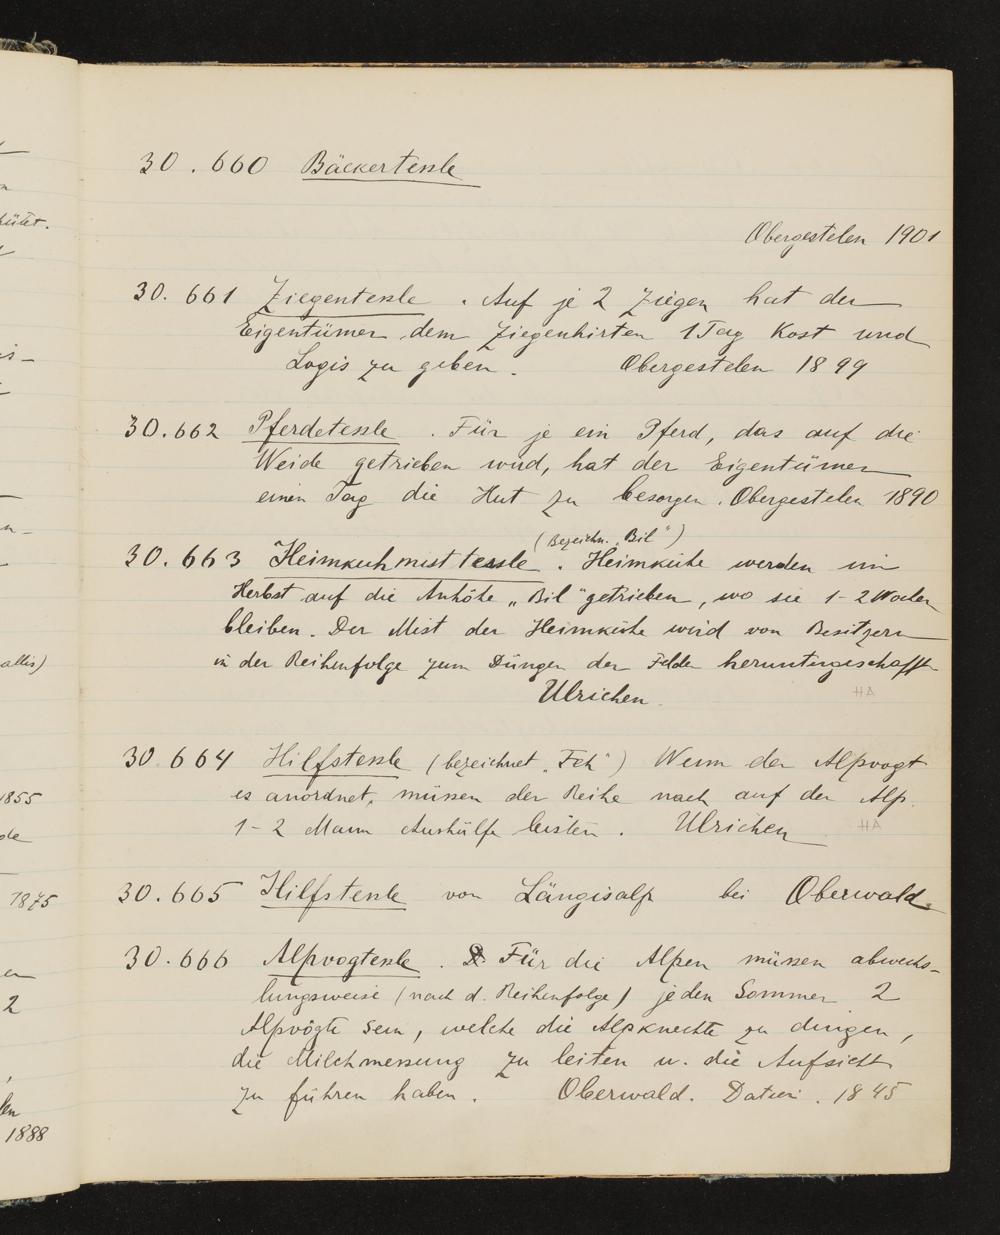 30.660 Bäckertessle
Obergestelen 1901
30.661 Ziegentessle. Auf je 2 Ziegen hat der
Eigentümer dem Ziegenhirten 1 Tag Kost und
Logis zu geben. Obergestelen 1899
30.662 Pferdetessle. Für je ein Pferd, das auf die
Weide getrieben wird, hat der Eigentümer
einen Tag die Hut zu besorgen. Obergestelen 1890
(Bezeichn. "Bil")
30.663 Heimkuhmisttessle. Heimkühe werden im
Herbst auf die Anhöhe „Bil" getrieben, wo sie 1-2 Wochen
bleiben. Der Mist der Heimkühe wird von Besitzern
in der Reihenfolge zum Düngen der Felder heruntergeschafft
Ulrichen.
30.664 Hilfstessle (bezeichnet „Feh") Wenn der Alpvogt
es anordnet, müssen der Reihe nach auf der Alp.
1-2 Mann Aushülfe leisten. Ulrichen
30.665 Hilfstessle von Längisalp bei Oberwald.
30.666 Alpvogtessle. D. Für die Alpen müssen abwechs-
lungsweise (nach d. Reihenfolge) jeden Sommer 2
Alpvögte sein, welche die Alpknechte zu dingen,
die Milchmessung zu leiten u. die Aufsicht
zu führen haben. Oberwald. Datier. 1845
hütet.
allis)
1855
1875
2
1888